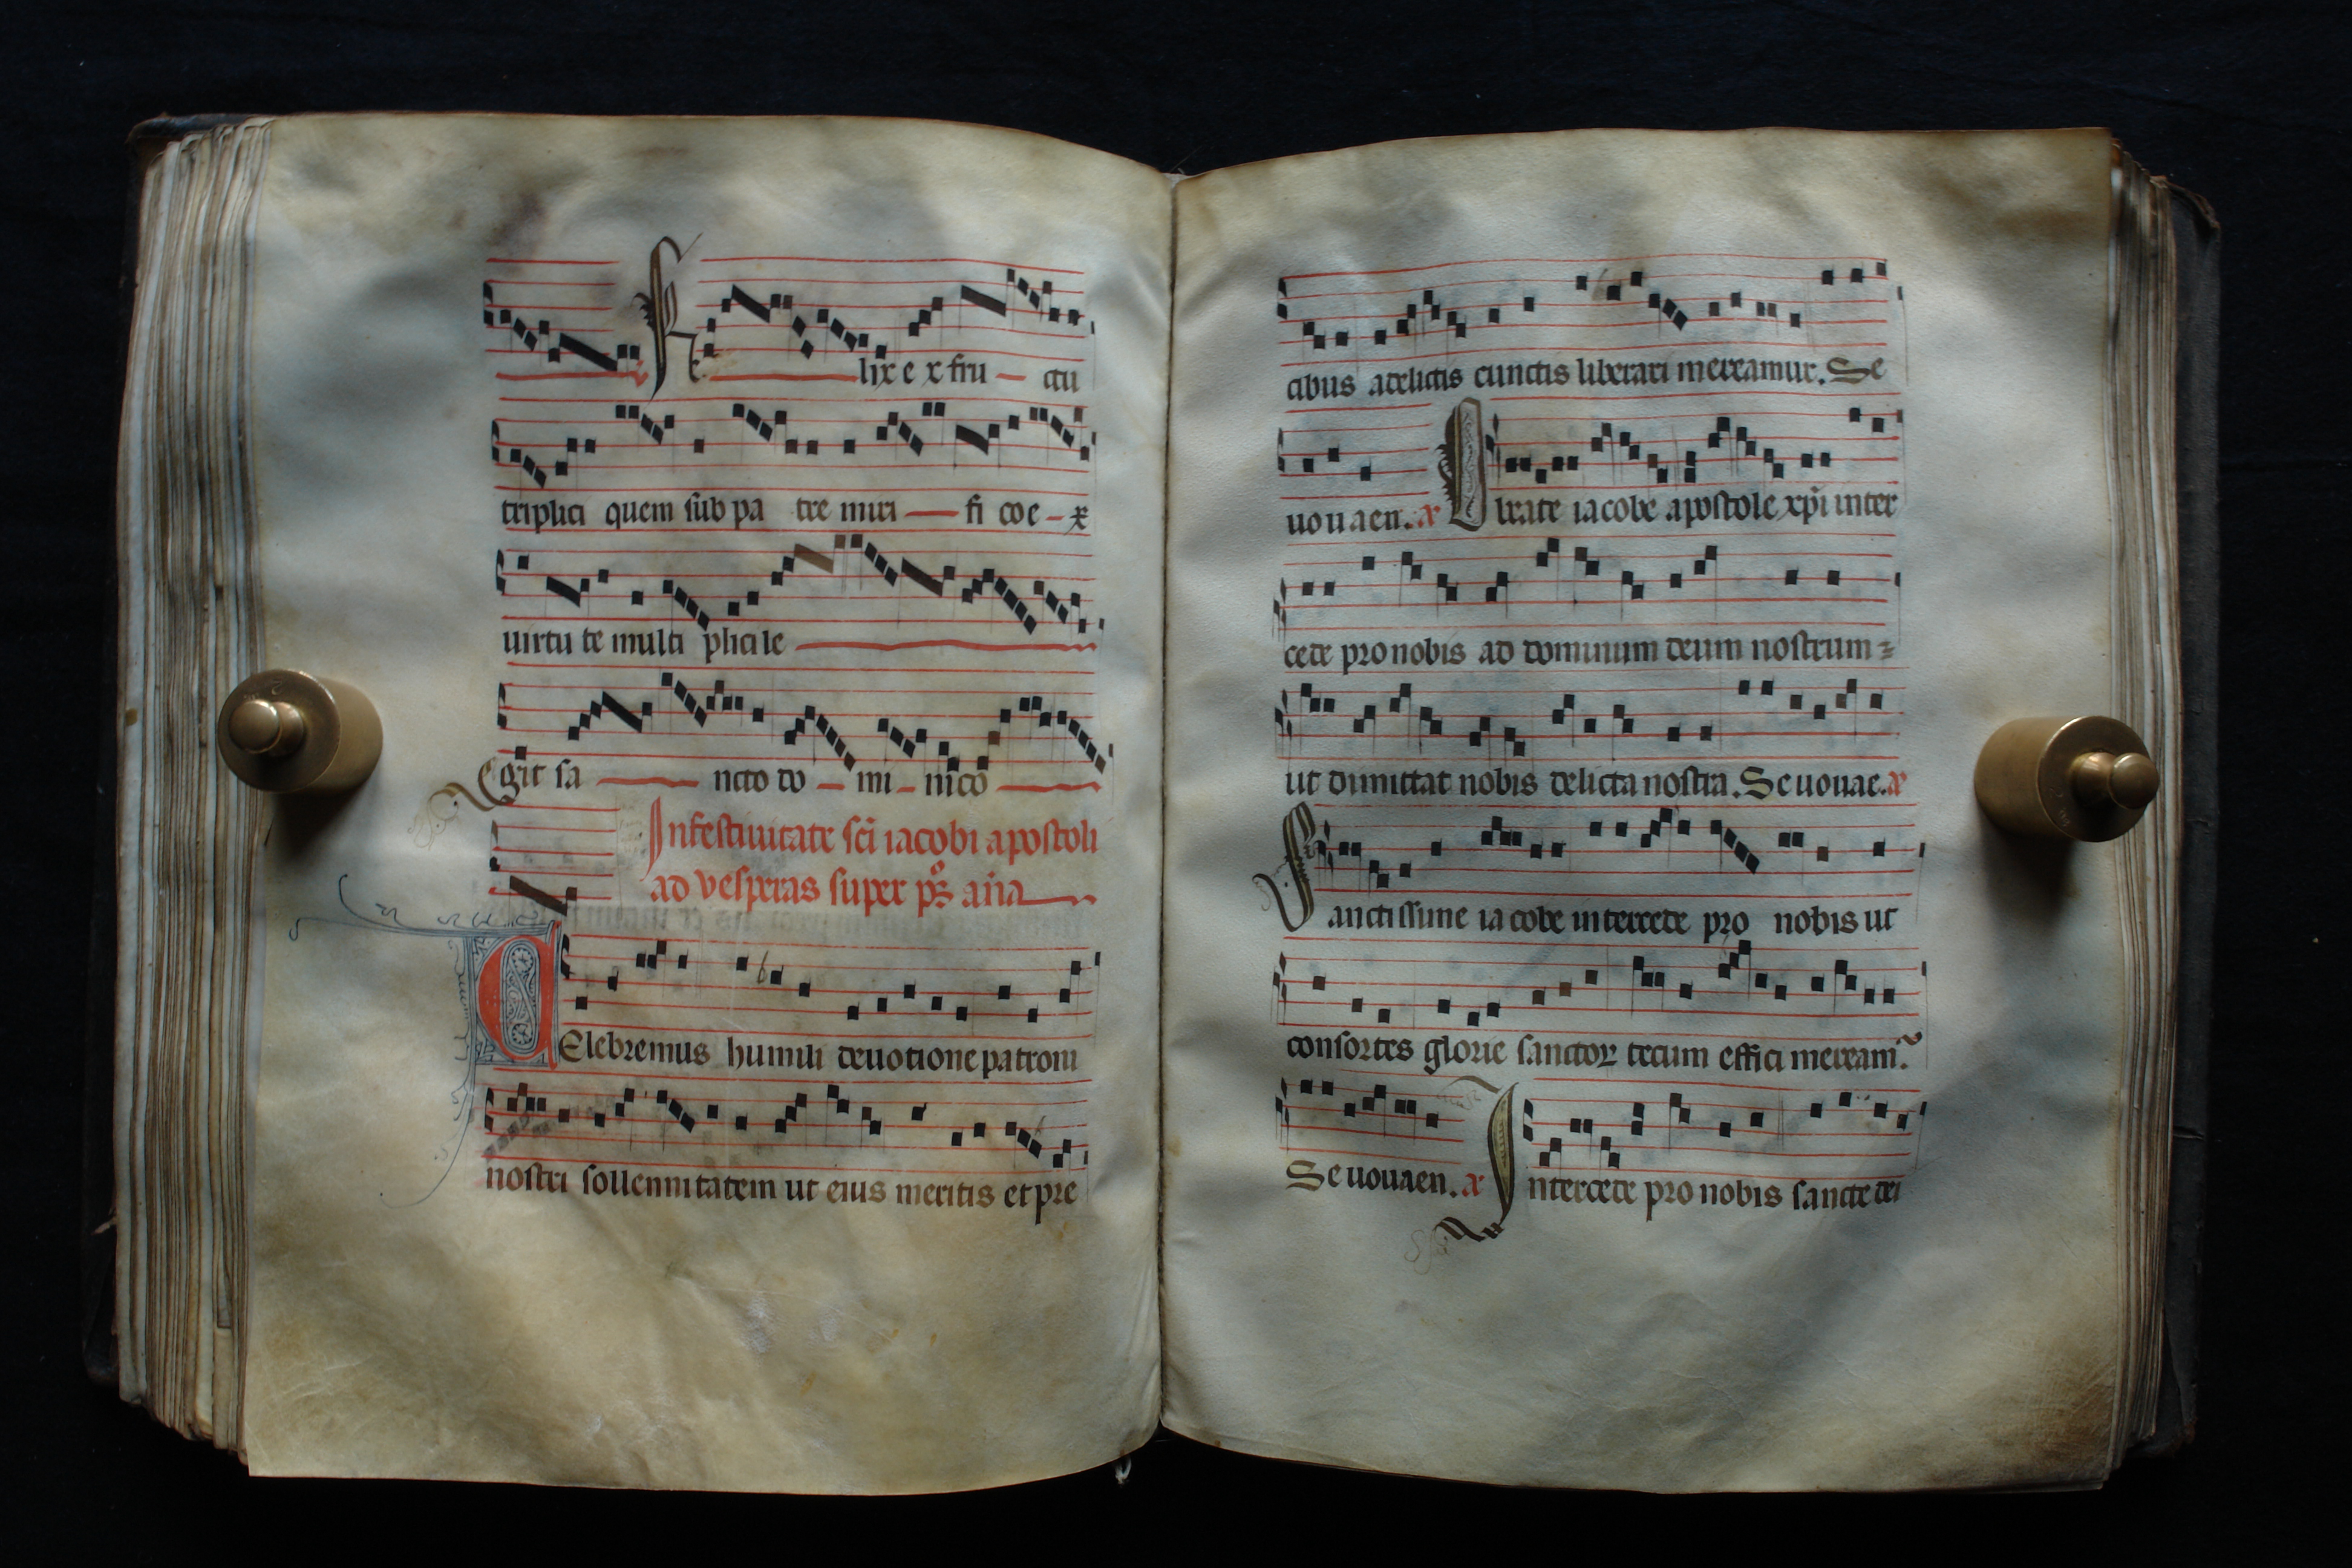 Felix ex fru — ctu
triplici quem sub pa tre miri — fi coe – x
uirtu te multi plici le
Egit sa — ncto do – mi – nico
In festiuitate sc̃i iacobi apostoli
ad vesperas super p̃s añа
CElebremus humili deuotione patroni
nostri sollennitatem ut eius meritis et pre
cibus a delictis cunctis liberari mereamur. Se
uouaen. a O beate iacobe apostole xp̃i inter
cede pro nobis ad dominum deum nostrum =
ut dimittat nobis delicta nostra. Seuouae. a
Sanctissime iacobe intercede pro nobis ut
consortes glorie sanctoꝝ tecum effici meream᷑.
Seuouaen. a Intercede pro nobis sancte dei